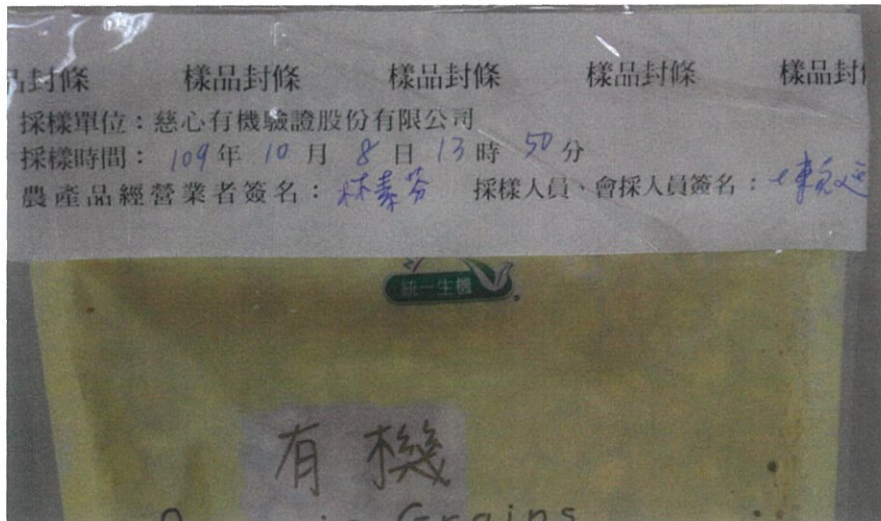 品封條 樣品封條 樣品封條 樣品封條 樣品封
採樣單位：慈心有機驗證股份有限公司
採樣時間：109年 10月 8日 13時 50分
農產品經營業者簽名：林 芬 採樣人員、會採人員簽名：
統一生機
有機
Grains